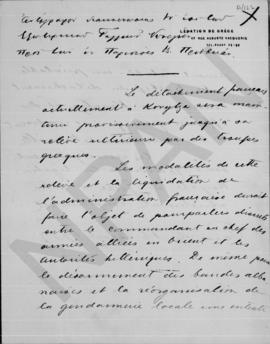 LEGATION DE GRÈCE
17 RUE AUGUSTE VACQUERIE
Le détachement français
actuellement à Korytza sera main
tenu provisoirement jusqu'à sa
relève ultérieure par des troupes
grecques.
Les modalités de cette
relève et la liquidation de
l'administration française devront
faire l'objet de pourparlers directs
entre le Commandant en chef des
armées alliées en Orient et les
autorités helléniques. De même pour
le désarmement des bandes alba
naises et la réorganisation de
la gendarmerie locale